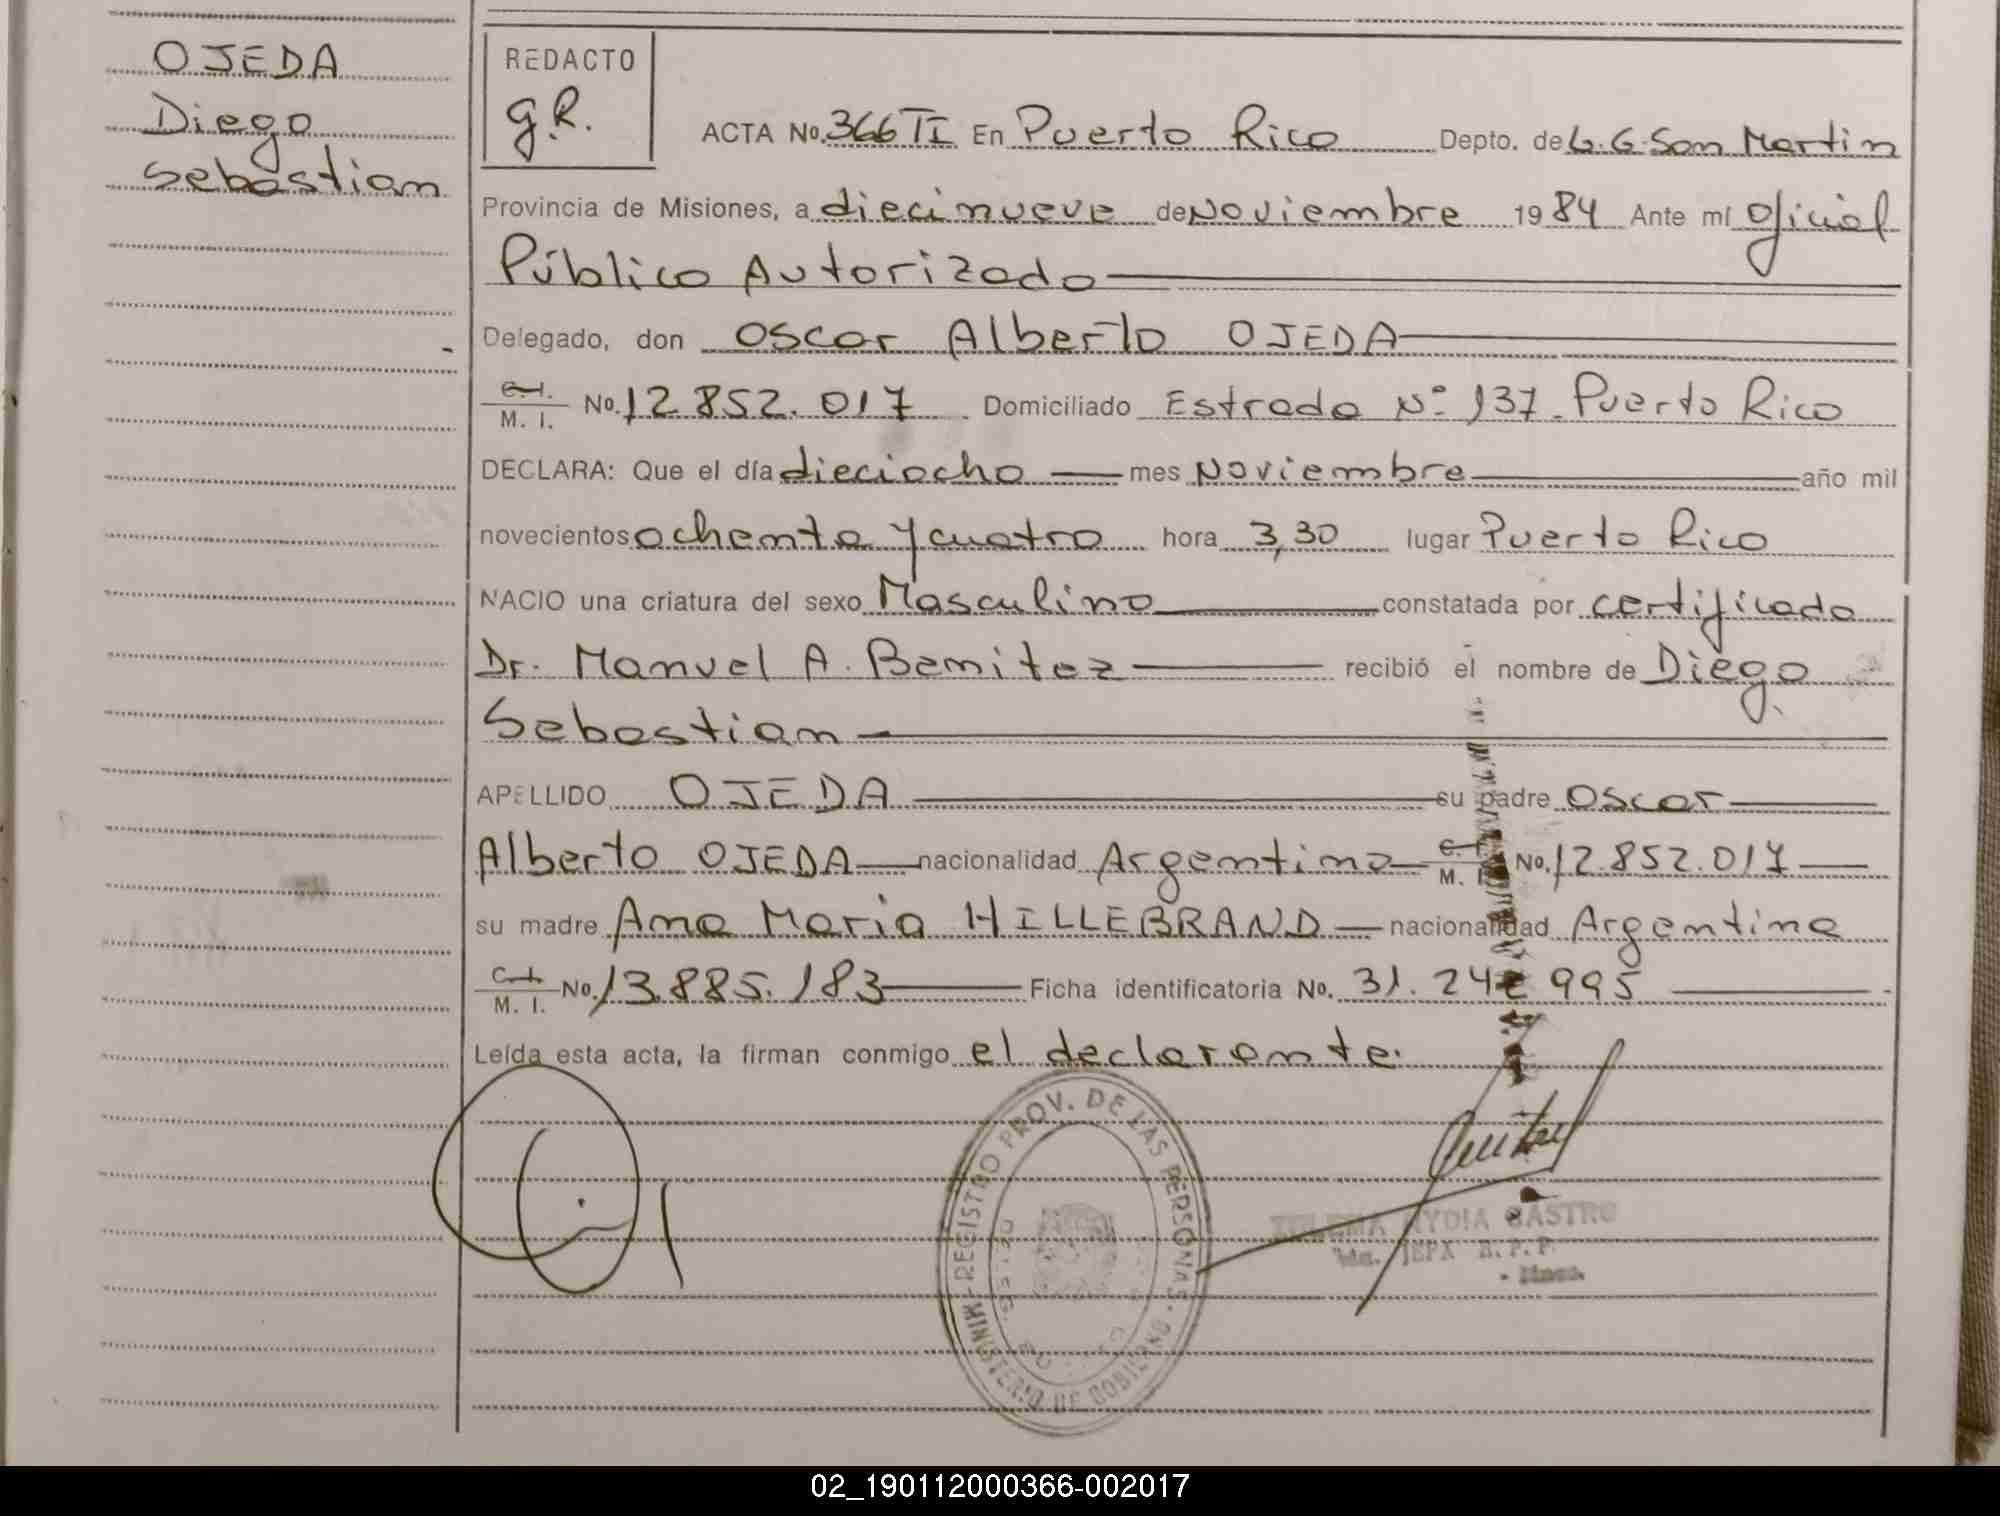 OJEDA
Diego
Sebastian
REDACTO
g.R.
ACTA No. 366 TI En Puerto Rico Depto. de L. G. San Martin
Provincia de Misiones, a diecinueve de Noviembre 1984 Ante mí Oficial
Público Autorizado
Delegado, don Oscar Alberto OJEDA
C. I. / M. I. No. 12.852.017 Domiciliado Estrada Nº 137. Puerto Rico
DECLARA: Que el día dieciocho mes Noviembre año mil
novecientos ochenta y cuatro hora 3,30 lugar Puerto Rico
NACIO una criatura del sexo Masculino constatada por certificado
Dr. Manuel A. Benitez recibió el nombre de Diego
Sebastian
APELLIDO OJEDA su padre Oscar
Alberto OJEDA nacionalidad Argentino C. I. / M. I. No. 12.852.017
su madre Ana Maria HILLEBRAND nacionalidad Argentina
C. I. / M. I. No. 13.885.183 Ficha identificatoria No. 31.24 995
Leída esta acta, la firman conmigo el declarante.
REGISTRO PROV. DE LAS PERSONAS
MINISTERIO DE GOBIERNO
CASTRO
02_190112000366-002017